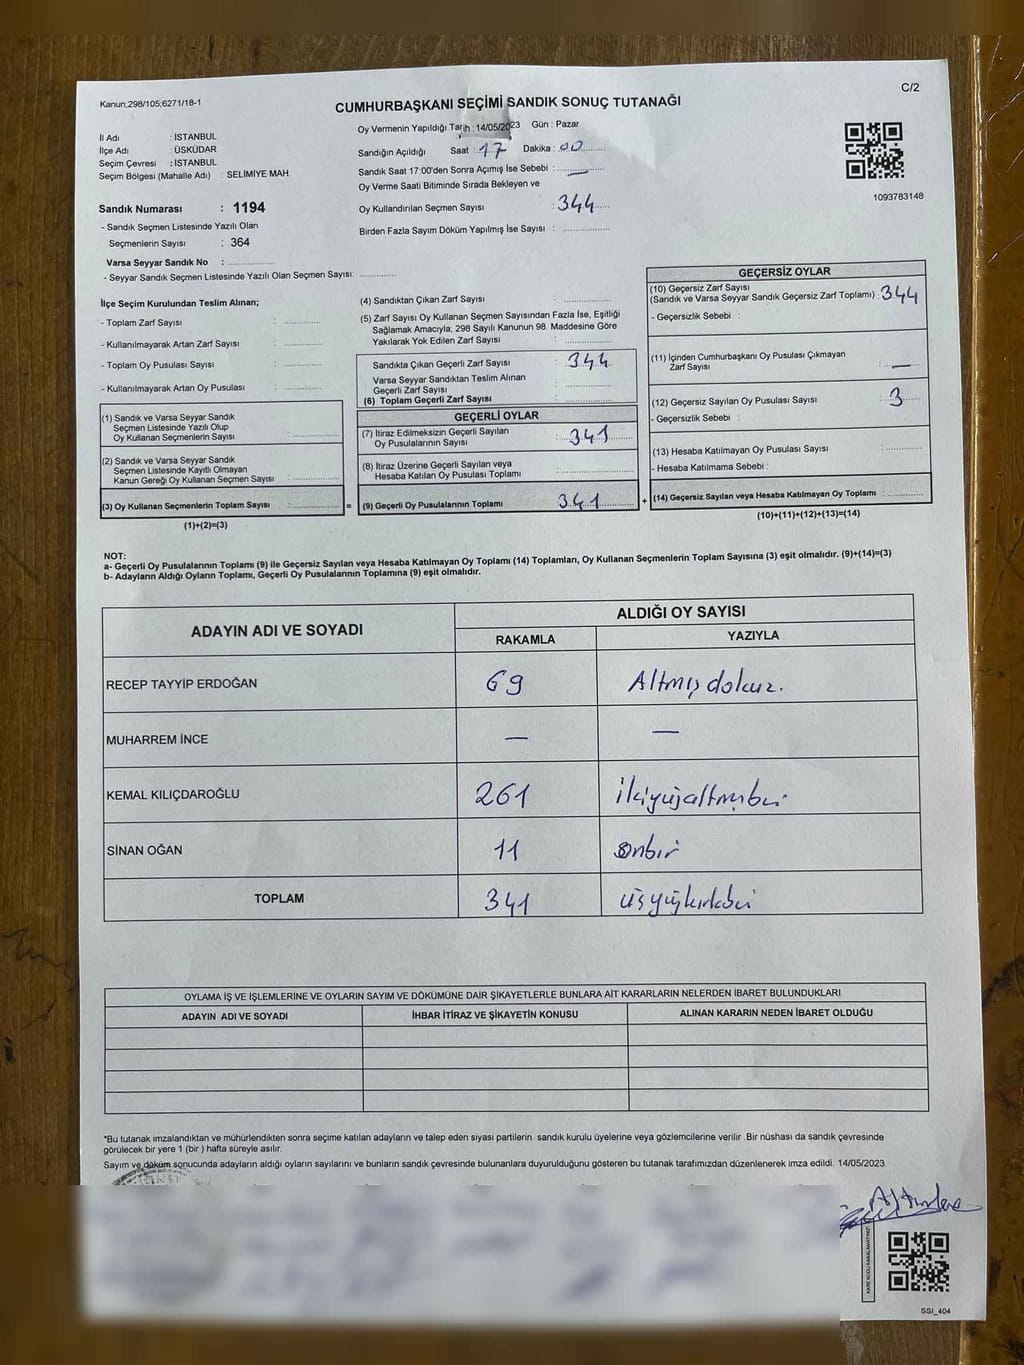 C/2
Kanun;298/105;6271/18-1
CUMHURBAŞKANI SEÇİMİ SANDIK SONUÇ TUTANAĞI
İl Adı : İSTANBUL
İlçe Adı : ÜSKÜDAR
Seçim Çevresi : İSTANBUL
Seçim Bölgesi (Mahalle Adı) : SELİMİYE MAH.
Sandık Numarası : 1194
- Sandık Seçmen Listesinde Yazılı Olan
Seçmenlerin Sayısı : 364
Varsa Seyyar Sandık No :
- Seyyar Sandık Seçmen Listesinde Yazılı Olan Seçmen Sayısı:
Oy Vermenin Yapıldığı Tarih : 14/05/2023 Gün : Pazar
Sandığın Açıldığı Saat : 17 Dakika : 00
Sandık Saat 17:00'den Sonra Açımış İse Sebebi : —
Oy Verme Saati Bitiminde Sırada Bekleyen ve
Oy Kullandırılan Seçmen Sayısı : 344
Birden Fazla Sayım Döküm Yapılmış İse Sayısı :
1093783148
İlçe Seçim Kurulundan Teslim Alınan;
- Toplam Zarf Sayısı :
- Kullanılmayarak Artan Zarf Sayısı :
- Toplam Oy Pusulası Sayısı :
- Kullanılmayarak Artan Oy Pusulası :
(1) Sandık ve Varsa Seyyar Sandık
Seçmen Listesinde Yazılı Olup
Oy Kullanan Seçmenlerin Sayısı :
(2) Sandık ve Varsa Seyyar Sandık
Seçmen Listesinde Kayıtlı Olmayan
Kanun Gereği Oy Kullanan Seçmen Sayısı :
(3) Oy Kullanan Seçmenlerin Toplam Sayısı :
(1)+(2)=(3)
=
(4) Sandıktan Çıkan Zarf Sayısı :
(5) Zarf Sayısı Oy Kullanan Seçmen Sayısından Fazla İse, Eşitliği
Sağlamak Amacıyla, 298 Sayılı Kanunun 98. Maddesine Göre
Yakılarak Yok Edilen Zarf Sayısı :
Sandıkta Çıkan Geçerli Zarf Sayısı : 344
Varsa Seyyar Sandıktan Teslim Alınan
Geçerli Zarf Sayısı :
(6) Toplam Geçerli Zarf Sayısı :
GEÇERLİ OYLAR
(7) İtiraz Edilmeksizin Geçerli Sayılan
Oy Pusulalarının Sayısı : 341
(8) İtiraz Üzerine Geçerli Sayılan veya
Hesaba Katılan Oy Pusulası Toplamı :
(9) Geçerli Oy Pusulalarının Toplamı : 341
+
GEÇERSİZ OYLAR
(10) Geçersiz Zarf Sayısı
(Sandık ve Varsa Seyyar Sandık Geçersiz Zarf Toplamı) : 344
- Geçersizlik Sebebi :
(11) İçinden Cumhurbaşkanı Oy Pusulası Çıkmayan
Zarf Sayısı : —
(12) Geçersiz Sayılan Oy Pusulası Sayısı : 3
- Geçersizlik Sebebi :
(13) Hesaba Katılmayan Oy Pusulası Sayısı :
- Hesaba Katılmama Sebebi :
(14) Geçersiz Sayılan veya Hesaba Katılmayan Oy Toplamı :
(10)+(11)+(12)+(13)=(14)
NOT:
a- Geçerli Oy Pusulalarının Toplamı (9) ile Geçersiz Sayılan veya Hesaba Katılmayan Oy Toplamı (14) Toplamları, Oy Kullanan Seçmenlerin Toplam Sayısına (3) eşit olmalıdır. (9)+(14)=(3)
b- Adayların Aldığı Oyların Toplamı, Geçerli Oy Pusulalarının Toplamına (9) eşit olmalıdır.
ADAYIN ADI VE SOYADI
ALDIĞI OY SAYISI
RAKAMLA YAZIYLA
RECEP TAYYİP ERDOĞAN 69 Altmış dokuz.
MUHARREM İNCE — —
KEMAL KILIÇDAROĞLU 261 ikiyüzaltmışbir
SİNAN OĞAN 11 onbir
TOPLAM 341 üçyüzkırkbir
OYLAMA İŞ VE İŞLEMLERİNE VE OYLARIN SAYIM VE DÖKÜMÜNE DAİR ŞİKAYETLERLE BUNLARA AİT KARARLARIN NELERDEN İBARET BULUNDUKLARI
ADAYIN ADI VE SOYADI İHBAR İTİRAZ VE ŞİKAYETİN KONUSU ALINAN KARARIN NEDEN İBARET OLDUĞU
*Bu tutanak imzalandıktan ve mühürlendikten sonra seçime katılan adayların ve talep eden siyasi partilerin sandık kurulu üyelerine veya gözlemcilerine verilir .Bir nüshası da sandık çevresinde
görülecek bir yere 1 (bir ) hafta süreyle asılır.
Sayım ve döküm sonucunda adayların aldığı oyların sayılarını ve bunların sandık çevresinde bulunanlara duyurulduğunu gösteren bu tutanak tarafımızdan düzenlenerek imza edildi. 14/05/2023
SSI_404